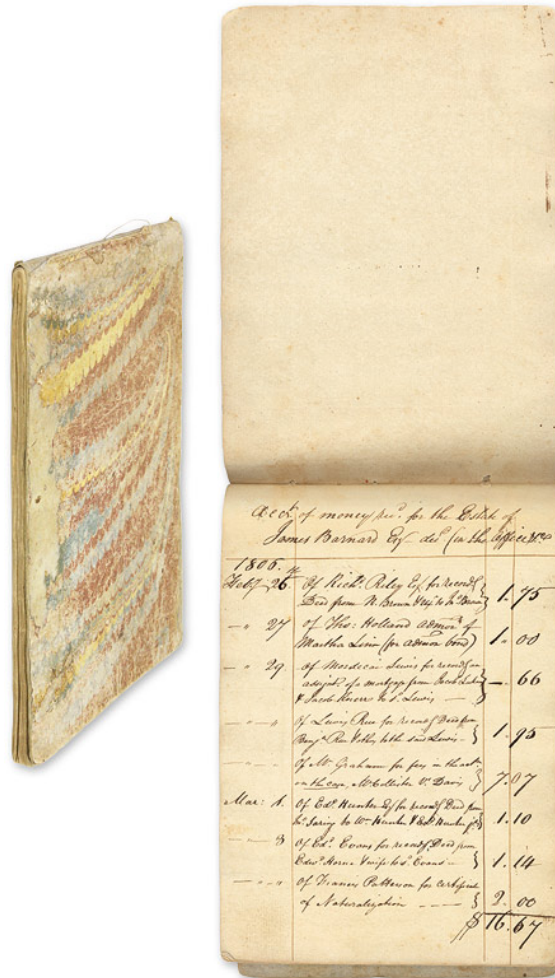 Acct. of money recd. for the Estate of
James Barnard Esq. decd. (in the office &c
1806.
Feby. 26. Of Richd. Riley Esq. for recordg. } 1. 75
Deed from N. Brown & wf. to Jn. Brown
- " 27 of Tho: Holland admor. of
Martha Linn (for admon bond) } 1. 00
- " 29 of Mordecai Lewis for recordg. an
assignt. of a mortgage from Jacob
& Jacob Knorr to sd. Lewis - } - . 66
- " - " of Lewis Rue for recordg. Deed from
Benja. Rue & others to the said Lewis - } 1. 95
- " - " of Wm. Graham for fees in the actn.
on the case, McCollister Vs. Davis } 7. 07
Mar: 1. Of Edd. Hunter Esq. for recordg. Deed from
to Wm. Hunter & Edd. Hunter } 1. 10
- " 3 Of Edd. Evans for recordg. Deed from
Edwd. Horne & wife to sd. Evans - } 1. 14
- " - " of Francis Patterson for certificate
of Naturalization - - - - } 2. 00
$ 16. 67